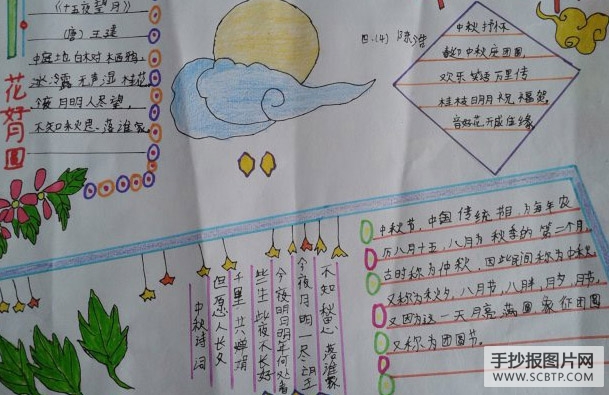 《十五夜望月》
(唐) 王建
中庭地白树栖鸦,
冷露无声湿桂花。
今夜月明人尽望,
不知秋思落谁家。
花好月圆
四.(4) 陈浩
中秋抒怀
欢乐笑语万里传
桂枝明月祝福笺
音好花开成佳缘
中秋节,中国传统节日,为每年农
历八月十五,八月为秋季的第二个月,
古时称为仲秋,因此民间称为中秋,
又称为秋夕,八月节,八月半,月夕,月节,
又因为这一天月亮满圆,象征团圆,
又称为团圆节。
中秋诗词
但愿人长久
千里共婵娟
此生此夜不长好
今夜明月明年何处看
今夜月明人尽望
不知秋思落谁家
手抄报图片网
WWW.SCBTP.COM